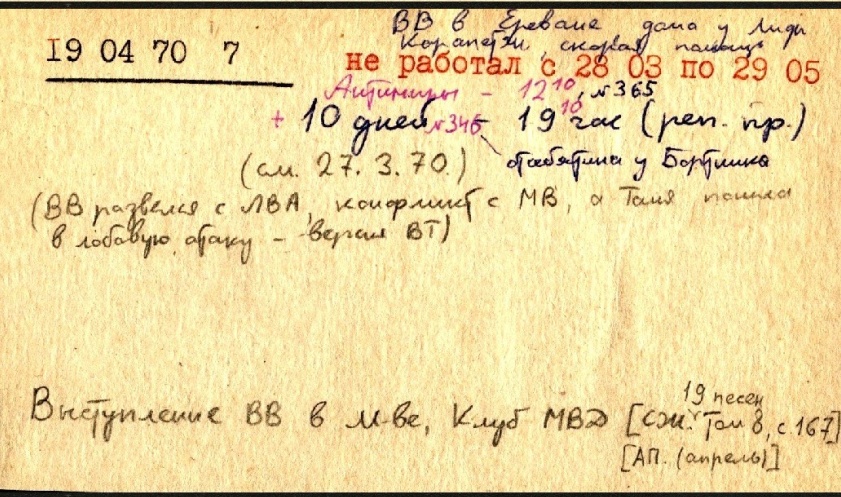 ВВ в Ереване дома у Лиды
Карапетян, скорая помощь
19 04 70 7
не работал с 28 03 по 29 05
Антимиры – 12¹⁰, №365
+ 10 дней №346 – 19¹⁰ час (реп. пр.)
(см. 27. 3. 70.)
у Бортника
(ВВ развелся с ЛВА, конфликт с МВ, а Таня пошла
в лобовую атаку – версия ВТ)
19 песен
Выступление ВВ в М-ве, Клуб МВД [СЖ. Том 8, с. 167]
[АП. (апрель)]